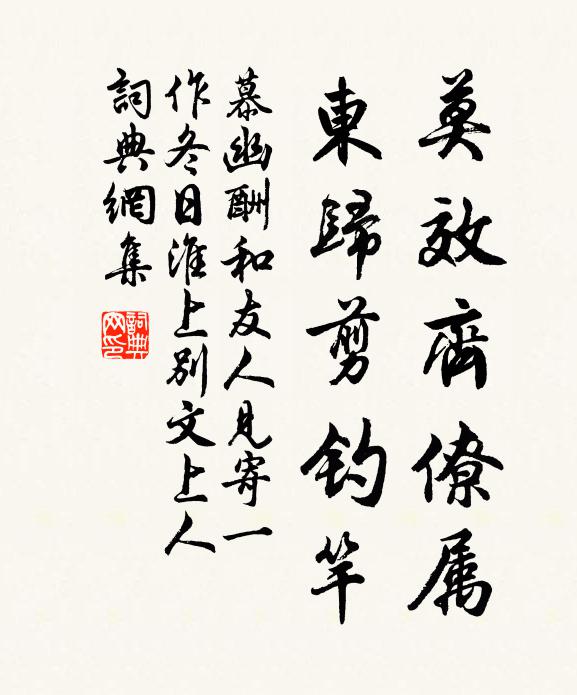 莫效齊僚属
東歸剪钓竿
慕幽酬和友人見寄一
作冬日淮上別文上人
詞典網集
詞典网印